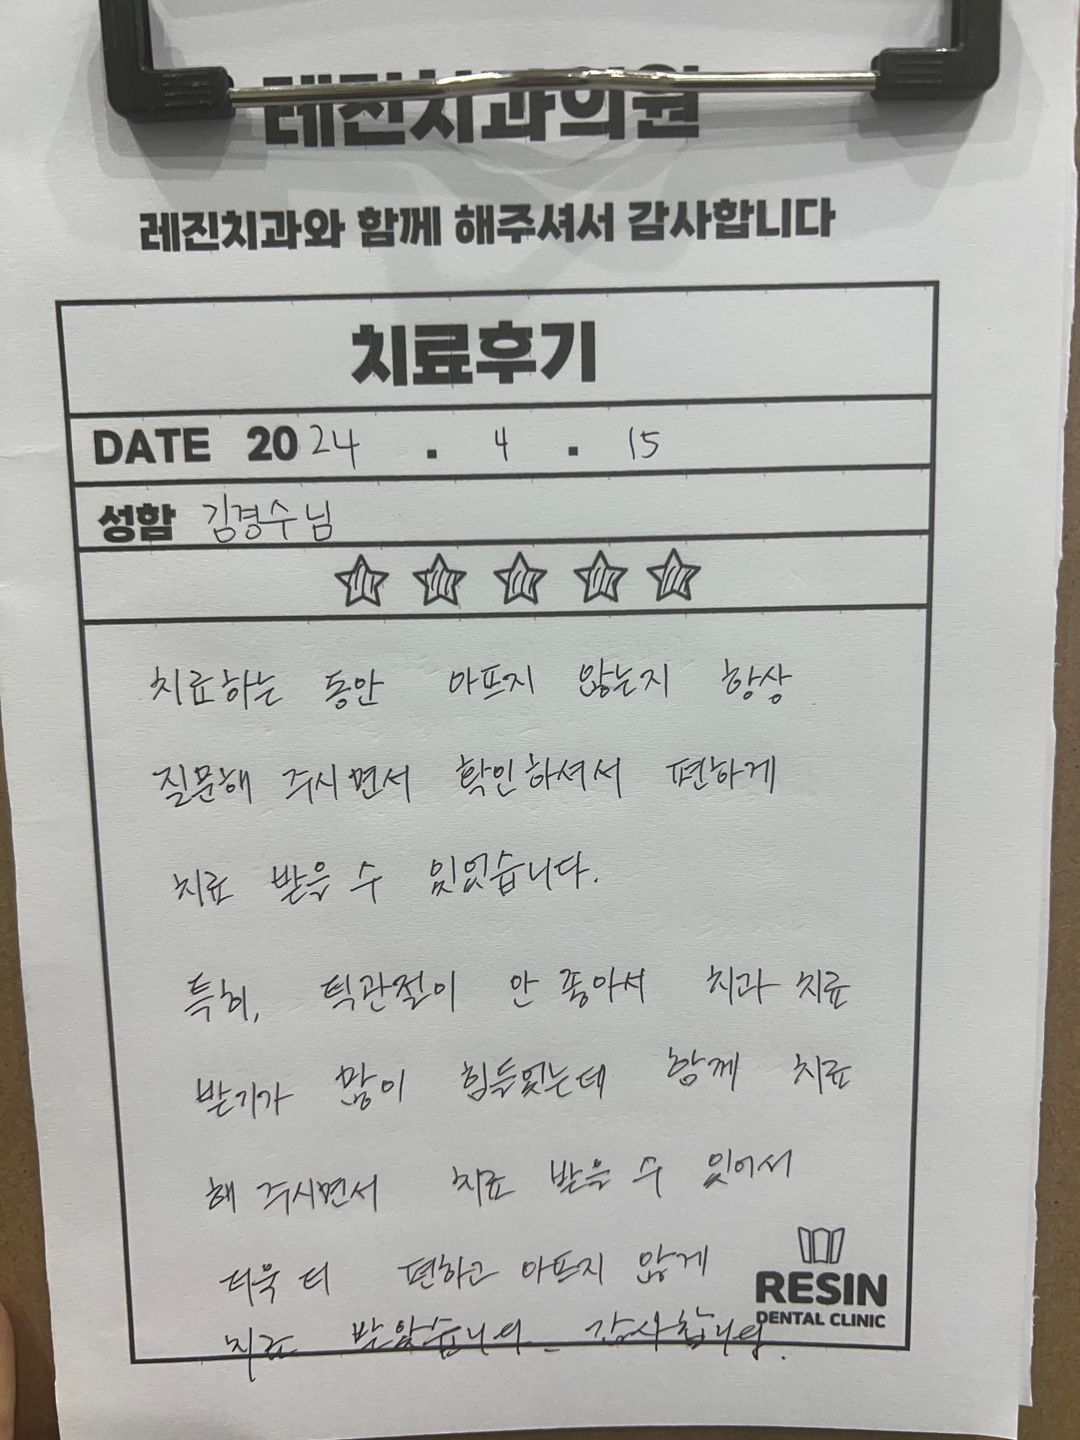 레진치과의원
레진치과와 함께 해주셔서 감사합니다
치료후기
DATE 2024 . 4 . 15
성함 김경수님
치료하는 동안 아프지 않는지 항상
질문해 주시면서 확인하셔서 편하게
치료 받을 수 있었습니다.
특히, 턱관절이 안 좋아서 치과 치료
받기가 많이 힘들었는데 함께 치료
해 주시면서 치료 받을 수 있어서
더욱 더 편하고 아프지 않게
치료 받았습니다. 감사합니다.
RESIN
DENTAL CLINIC